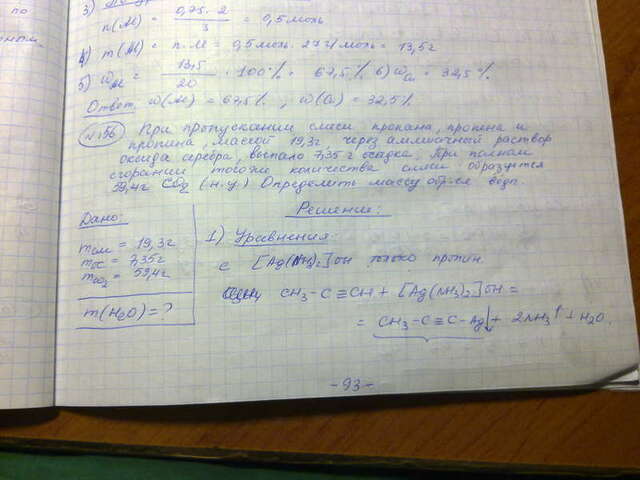 по
3)
n(Al) = 0,75 · 2 / 3 = 0,5 моль
4) m(Al) = n · M = 0,5 моль · 27 г/моль = 13,5 г
5) W Al = 13,5 / 20 · 100% = 67,5% 6) W Cu = 32,5%
Ответ: W(Al) = 67,5%; W(Cu) = 32,5%
№ 156 При пропускании смеси пропана, пропена и
пропина, массой 19,3 г, через аммиачный раствор
оксида серебра, выпало 7,35 г осадка. При полном
сгорании того же количества смеси образуется
59,4 г CO2 (н.у.) Определить массу обр-ся воды.
Дано:
mсм = 19,3 г
mос = 7,35 г
mCO2 = 59,4 г
m(H2O) = ?
Решение:
1) Уравнения:
с [Ag(NH3)2]OH только пропин
CH3–C≡CH + [Ag(NH3)2]OH =
= CH3–C≡C–Ag↓ + 2NH3↑ + H2O.
-93-